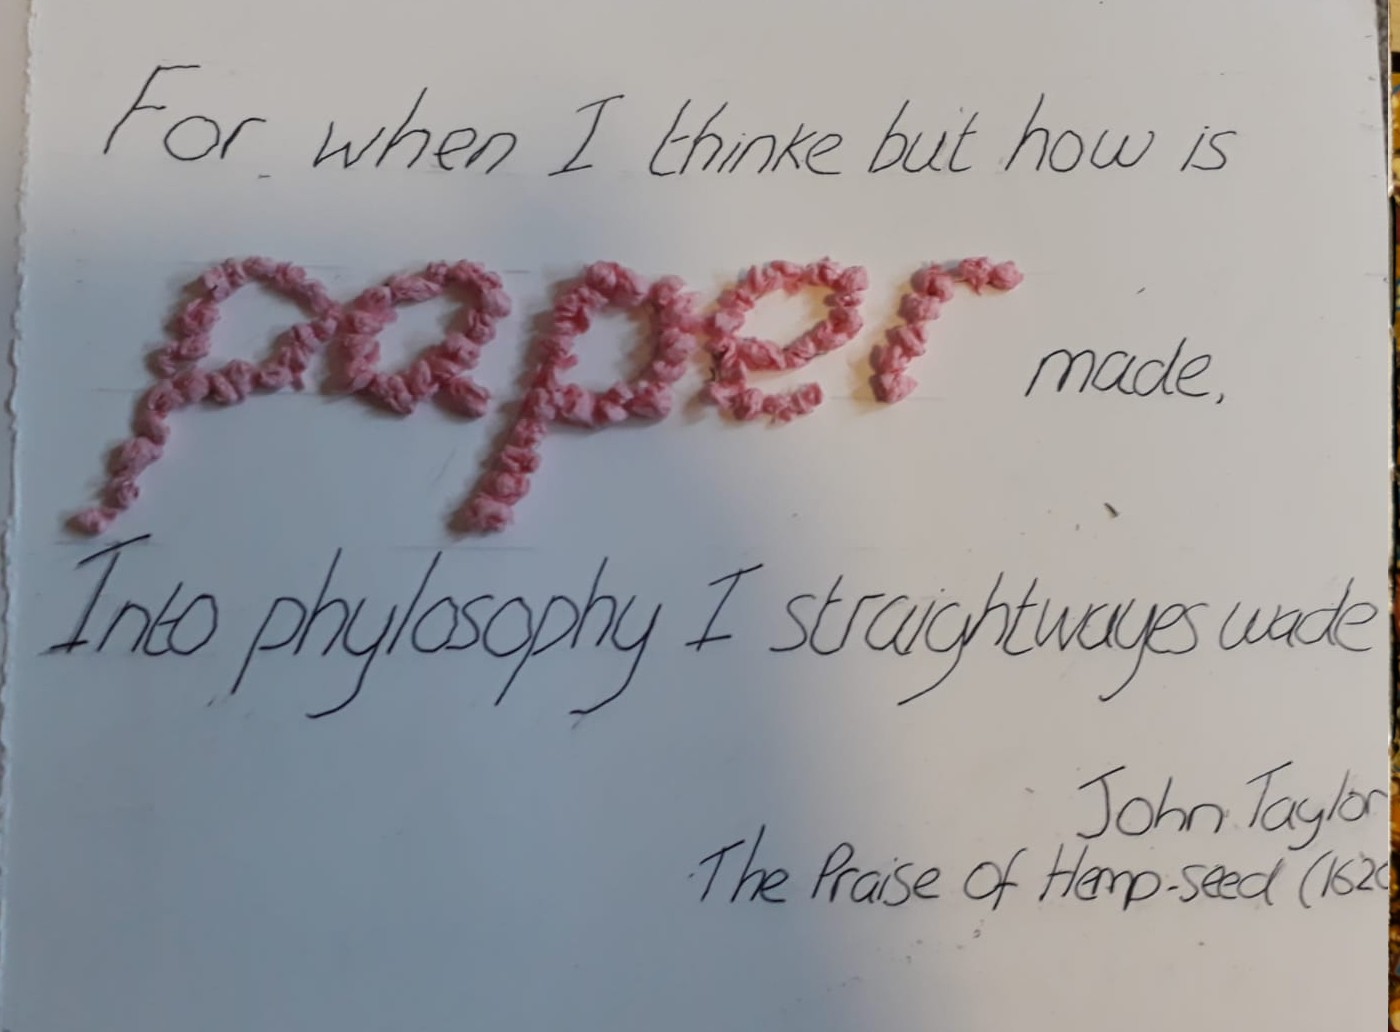 For when I thinke but how is
paper made,
Into phylosophy I straightwayes wade
John Taylor
The Praise Of Hemp-seed (1620